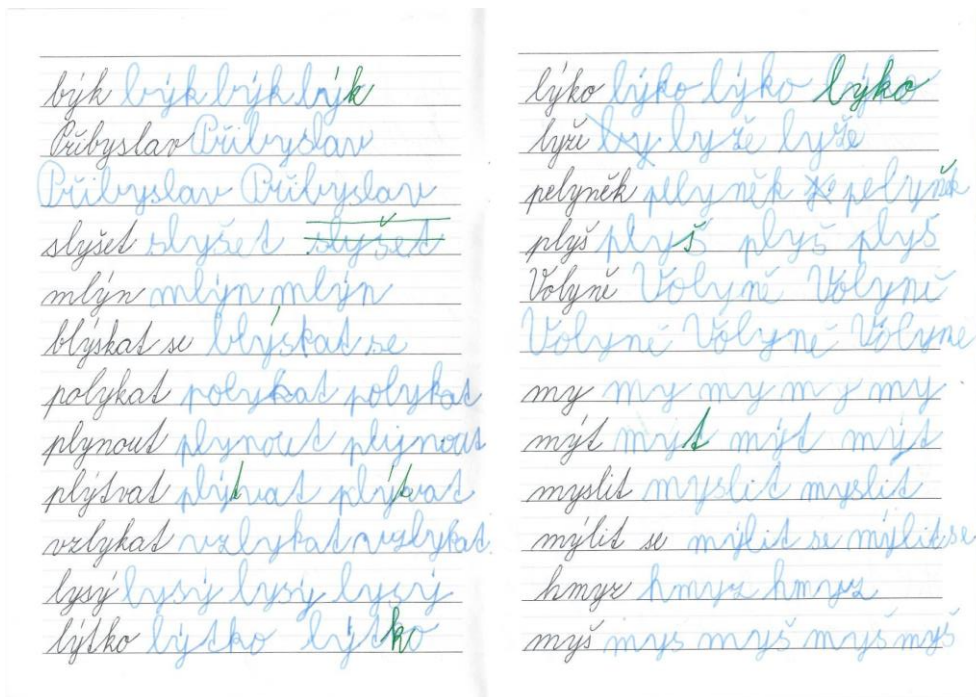 býk býk býk býk
Přibyslav Přibyslav
Přibyslav Přibyslav
slyšet slyšet slyšet
mlýn mlýn, mlýn
blýskat se blýskat se
polykat polykat polykat
plynout plynout plynout
plýtvat plýtvat plýtvat
vzlykat vzlykat vzlykat
lysý lysý lysý lysý
lýtko lýtko lýtko
lýko lýko lýko lýko
lyže lyže lyže
pelyněk pelyněk pelyněk
plyš plyš plyš plyš
Volyně Volyně Volyně
Volyně Volyně Volyne
my my my my my
mýt mýt mýt mýt
myslit myslit myslit
mýlit se mýlit se mýlit se
hmyz hmyz hmyz
myš mys myš myš myš